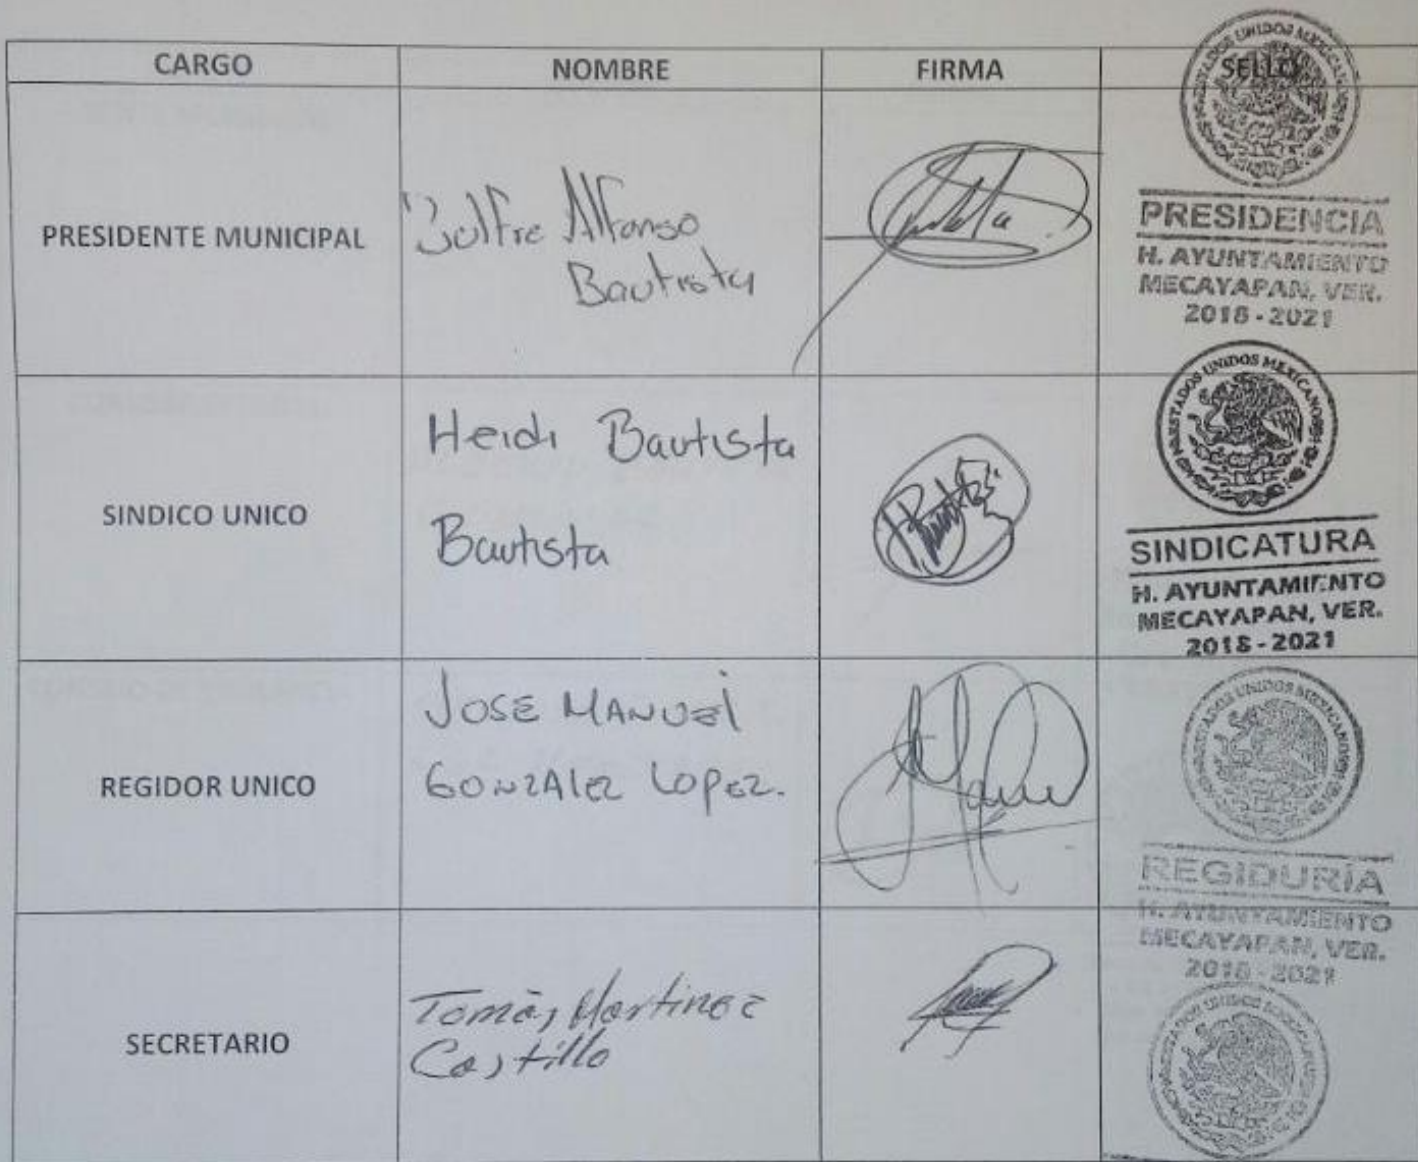 CARGO NOMBRE FIRMA SELLO
ESTADOS UNIDOS MEXICANOS
PRESIDENTE MUNICIPAL
Alfonso
Bautista
PRESIDENCIA
H. AYUNTAMIENTO
MECAYAPAN, VER.
2018-2021
SINDICO UNICO
Heidi Bautista
Bautista
ESTADOS UNIDOS MEXICANOS
SINDICATURA
H. AYUNTAMIENTO
MECAYAPAN, VER.
2018-2021
REGIDOR UNICO
JOSE MANUEL
GONZALEZ LOPEZ.
ESTADOS UNIDOS MEXICANOS
REGIDURÍA
H. AYUNTAMIENTO
MECAYAPAN, VER.
2018-2021
SECRETARIO
Tomás Martinez
Castillo
ESTADOS UNIDOS MEXICANOS